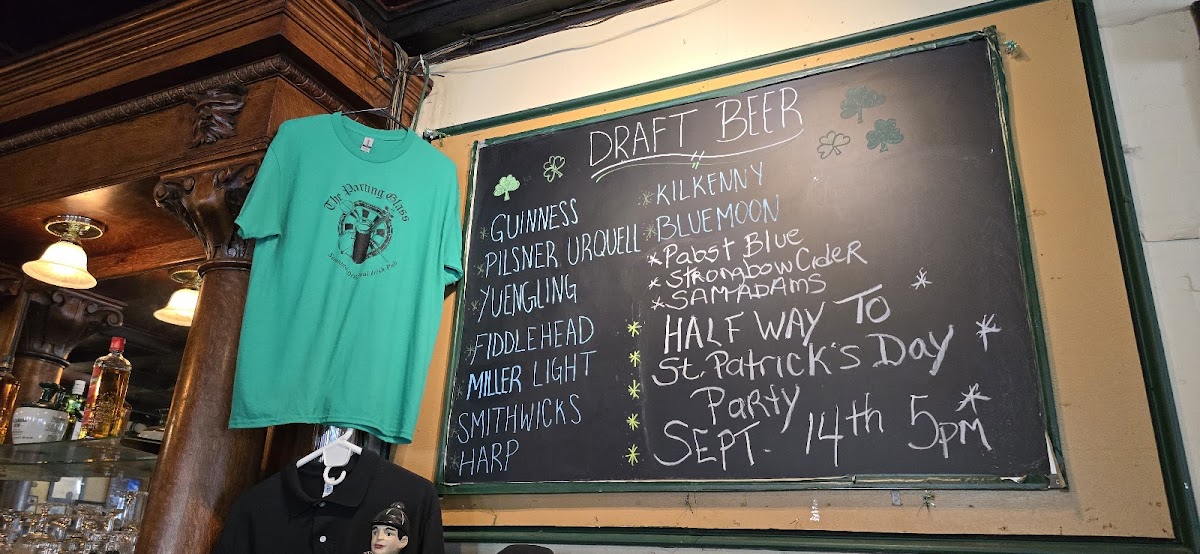 The Parting Glass
DRAFT BEER
GUINNESS
PILSNER URQUELL
YUENGLING
FIDDLEHEAD
MILLER LIGHT
SMITHWICKS
HARP
KILKENNY
BLUEMOON
Pabst Blue
Strongbow Cider
SAM ADAMS
HALF WAY TO
St. Patrick's Day
Party
SEPT. 14th 5pm